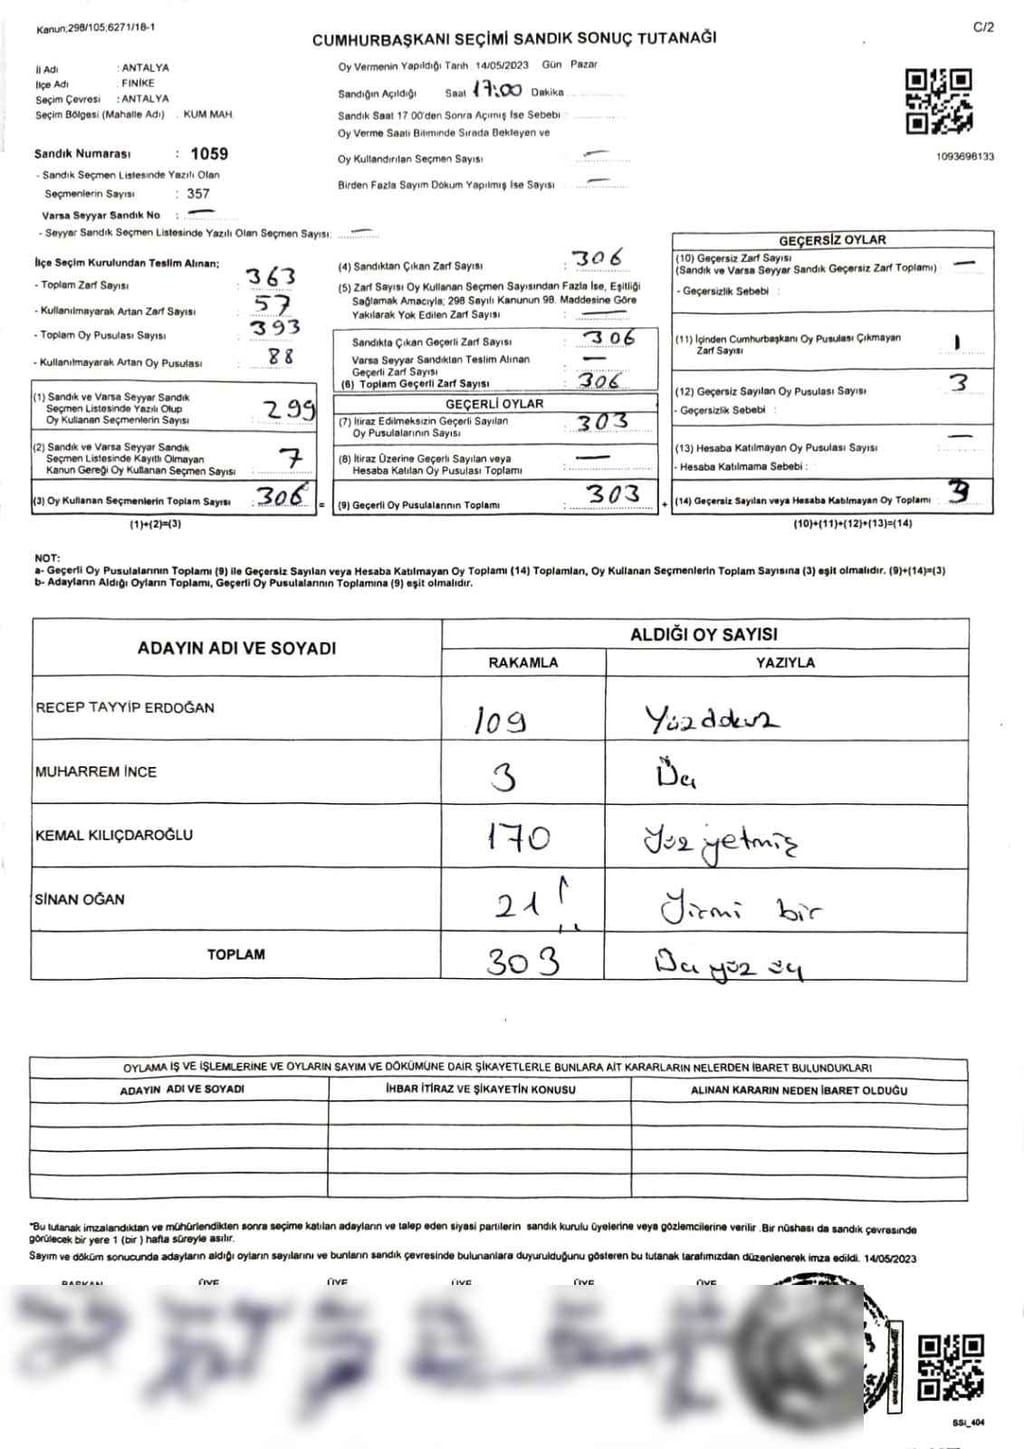 Kanun;298/105;6271/18-1
C/2
CUMHURBAŞKANI SEÇİMİ SANDIK SONUÇ TUTANAĞI
İl Adı : ANTALYA
İlçe Adı : FİNİKE
Seçim Çevresi : ANTALYA
Seçim Bölgesi (Mahalle Adı) . KUM MAH.
Sandık Numarası : 1059
- Sandık Seçmen Listesinde Yazılı Olan
Seçmenlerin Sayısı : 357
Varsa Seyyar Sandık No : —
- Seyyar Sandık Seçmen Listesinde Yazılı Olan Seçmen Sayısı: —
Oy Vermenin Yapıldığı Tarih 14/05/2023 Gün Pazar
Sandığın Açıldığı Saat 17:00 Dakika
Sandık Saat 17 00'den Sonra Açılmış İse Sebebi :
Oy Verme Saati Bitiminde Sırada Bekleyen ve
Oy Kullandırılan Seçmen Sayısı : —
Birden Fazla Sayım Döküm Yapılmış İse Sayısı : —
1093698133
İlçe Seçim Kurulundan Teslim Alınan;
- Toplam Zarf Sayısı : 363
- Kullanılmayarak Artan Zarf Sayısı : 57
- Toplam Oy Pusulası Sayısı : 393
- Kullanılmayarak Artan Oy Pusulası : 88
(1) Sandık ve Varsa Seyyar Sandık
Seçmen Listesinde Yazılı Olup
Oy Kullanan Seçmenlerin Sayısı : 299
(2) Sandık ve Varsa Seyyar Sandık
Seçmen Listesinde Kayıtlı Olmayan
Kanun Gereği Oy Kullanan Seçmen Sayısı : 7
(3) Oy Kullanan Seçmenlerin Toplam Sayısı : 306
(1)+(2)=(3)
(4) Sandıktan Çıkan Zarf Sayısı : 306
(5) Zarf Sayısı Oy Kullanan Seçmen Sayısından Fazla İse, Eşitliği
Sağlamak Amacıyla; 298 Sayılı Kanunun 98. Maddesine Göre
Yakılarak Yok Edilen Zarf Sayısı : —
Sandıkta Çıkan Geçerli Zarf Sayısı : 306
Varsa Seyyar Sandıktan Teslim Alınan
Geçerli Zarf Sayısı : —
(6) Toplam Geçerli Zarf Sayısı : 306
GEÇERLİ OYLAR
(7) İtiraz Edilmeksizin Geçerli Sayılan
Oy Pusulalarının Sayısı : 303
(8) İtiraz Üzerine Geçerli Sayılan veya
Hesaba Katılan Oy Pusulası Toplamı : —
= (9) Geçerli Oy Pusulalarının Toplamı : 303
GEÇERSİZ OYLAR
(10) Geçersiz Zarf Sayısı —
(Sandık ve Varsa Seyyar Sandık Geçersiz Zarf Toplamı) :
- Geçersizlik Sebebi :
(11) İçinden Cumhurbaşkanı Oy Pusulası Çıkmayan
Zarf Sayısı : 1
(12) Geçersiz Sayılan Oy Pusulası Sayısı : 3
- Geçersizlik Sebebi :
(13) Hesaba Katılmayan Oy Pusulası Sayısı : —
- Hesaba Katılmama Sebebi :
+ (14) Geçersiz Sayılan veya Hesaba Katılmayan Oy Toplamı : 3
(10)+(11)+(12)+(13)=(14)
NOT:
a- Geçerli Oy Pusulalarının Toplamı (9) ile Geçersiz Sayılan veya Hesaba Katılmayan Oy Toplamı (14) Toplamları, Oy Kullanan Seçmenlerin Toplam Sayısına (3) eşit olmalıdır. (9)+(14)=(3)
b- Adayların Aldığı Oyların Toplamı, Geçerli Oy Pusulalarının Toplamına (9) eşit olmalıdır.
ADAYIN ADI VE SOYADI ALDIĞI OY SAYISI
RAKAMLA YAZIYLA
RECEP TAYYİP ERDOĞAN 109 Yüzdokuz
MUHARREM İNCE 3 Üç
KEMAL KILIÇDAROĞLU 170 Yüz yetmiş
SİNAN OĞAN 21 Yirmi bir
TOPLAM 303 Üç yüz üç
OYLAMA İŞ VE İŞLEMLERİNE VE OYLARIN SAYIM VE DÖKÜMÜNE DAİR ŞİKAYETLERLE BUNLARA AİT KARARLARIN NELERDEN İBARET BULUNDUKLARI
ADAYIN ADI VE SOYADI İHBAR İTİRAZ VE ŞİKAYETİN KONUSU ALINAN KARARIN NEDEN İBARET OLDUĞU
*Bu tutanak imzalandıktan ve mühürlendikten sonra seçime katılan adayların ve talep eden siyasi partilerin sandık kurulu üyelerine veya gözlemcilerine verilir. Bir nüshası da sandık çevresinde
görülecek bir yere 1 (bir) hafta süreyle asılır.
Sayım ve döküm sonucunda adayların aldığı oyların sayılarını ve bunların sandık çevresinde bulunanlara duyurulduğunu gösteren bu tutanak tarafımızdan düzenlenerek imza edildi. 14/05/2023
BAŞKAN ÜYE ÜYE ÜYE ÜYE ÜYE
SSI_404